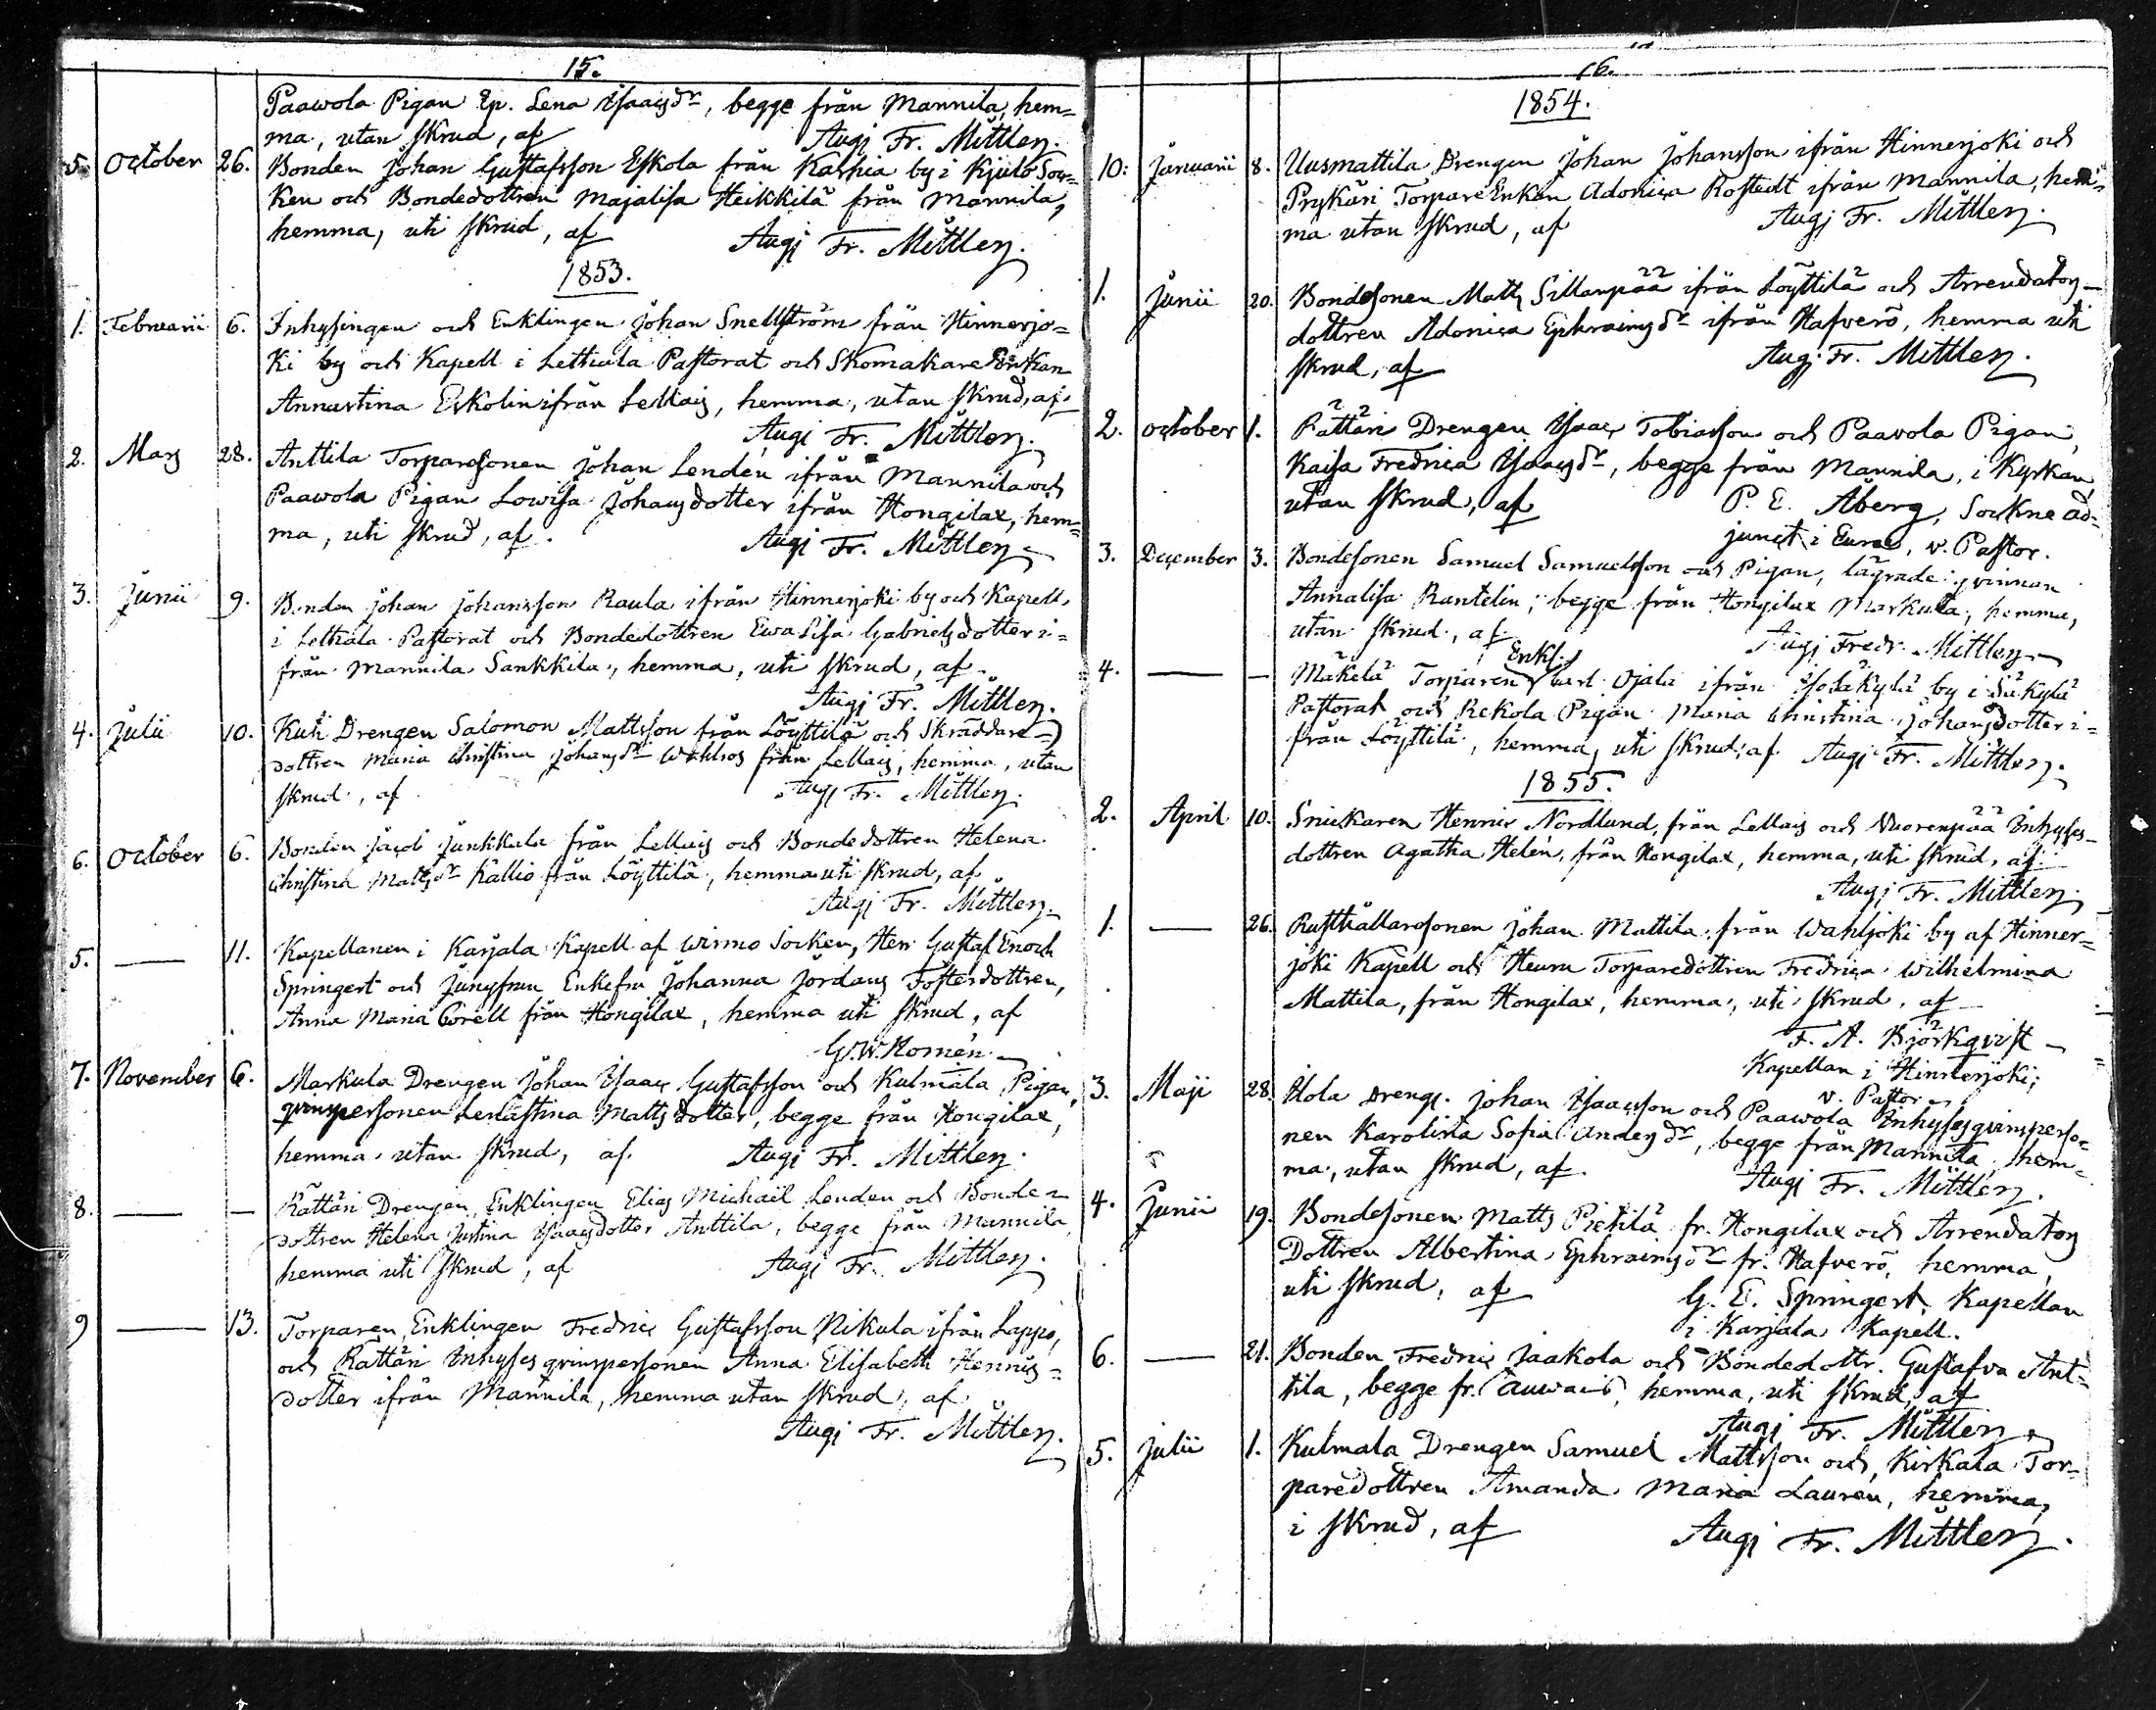 15.
Paawola Pigan Ep. Lena Isaacsdr, begge från Mannila, hem=
ma, utan skrud, af Augj Fr. Mittler.
5. October 26. Bonden Johan Gustafsson Eskola från Karhia by i Kjulo Soc=
ken och Bondedottren Majalisa Heikkilä från Mannila,
hemma, uti skrud, af Augj Fr. Mittler.
1853.
1. Februarii 6. Inhysingen och Enklingen Johan Snellström från Hinnerjo=
ki by och Kapell i Letthala Pastorat och Skomakare Enkan
Annastina Eskolin ifrån Lellais, hemma, utan skrud, af
Augj Fr. Mittler.
2. Mars 28. Anttila Torparesonen Johan Lendén ifrån Mannila och
Paawola Pigan Lowisa Johansdotter ifrån Hongilax, hem=
ma, uti skrud, af. Augj Fr. Mittler.
3. Junii 9. Bonden Johan Johansson Raula ifrån Hinnerjoki by och Kapell
i Letthala Pastorat och Bondedottren Ewa Lisa Gabrielsdotter i=
från Mannila Sankkila, hemma, uti skrud, af
Augj Fr. Mittler.
4. Julii 10. Kuti Drengen Salomon Mattsson från Löyttilä och Skräddare=
dottren Maria Christina Johansdr Wahlros från Lellais, hemma, utan
skrud, af Augj Fr. Mittler.
6. October 6. Bonden Jacob Junkkala från Lellais och Bondedottren Helena
Christina Mattsdr Kallio från Löyttilä, hemma uti skrud, af
Augj Fr. Mittler.
5. — 11. Kapellanen i Karjala Kapell af Wirmo Socken, Herr Gustaf Enoch
Springert och Jungfrun Enkefru Johanna Jordans Fosterdottren,
Anna Maria Corell från Hongilax, hemma uti skrud, af
G. W. Homén.
7. November 6. Markula Drengen Johan Isaac Gustafsson och Kulmala Pigan,
qvinspersonen Lenastina Mattsdotter, begge från Hongilax,
hemma utan skrud, af Augj Fr. Mittler.
8. — — Rättäri Drengen, Enklingen Elias Michaël Lenden och Bonde=
dottren Helena Justina Isaacsdotter Anttila, begge från Mannila
hemma uti skrud, af Augj Fr. Mittler.
9 — 13. Torparen, Enklingen Fredric Gustafsson Nikula ifrån Lappo,
och Rättäri Inhyses qvinspersonen Anna Elisabeth Henrics=
dotter ifrån Mannila, hemma utan skrud, af
Augj Fr. Mittler.
16.
1854.
10. Januarii 8. Uusmattila Drengen Johan Johansson ifrån Hinnerjoki och
Prykäri TorpareEnkan Adonica Rostedt ifrån Mannila, hem=
ma utan skrud, af Augj Fr. Mittler.
1. Junii 20. Bondesonen Matts Sillanpää ifrån Löyttilä och Arrendators
dottren Adonica Ephraimsdr ifrån Hafverö, hemma uti
skrud, af Augj Fr. Mittler.
2. October 1. Rättäri Drengen Isaac Tobiasson och Paavola Pigan,
Kaisa Fredrica Isaacsdr, begge från Mannila, i Kyrkan,
utan skrud, af P. E. Åberg, Sockne ad=
junct i Eura, v. Pastor.
3. December 3. Bondesonen Samuel Samuelsson och Pigan, lägrade qvinnan
Annalisa Rantelin, begge från Hongilax Markula, hemma,
utan skrud, af Augj Fredr. Mittler
4. — — Mäkelä Torparen Enkl. Carl Ojala ifrån by i Säkylä
Pastorat och Rekola Pigan Maria Christina Johansdotter i=
från Löyttilä, hemma, uti skrud, af Augj Fr. Mittler.
1855.
2. April 10. Snickaren Henric Nordlund, från Lellais och Vuorenpää Inhyses-
dottren Agatha Helén, från Hongilax, hemma, uti skrud, af
Augj Fr. Mittler.
1. — 26. Rusthållarsonen Johan Mattila, från Wahljoki by af Hinner=
joki Kapell och Heuru Torparedottren Fredrica Wilhelmina
Mattila, från Hongilax, hemma, uti skrud, af
F. A. Björkqvist
Kapellan i Hinnerjoki,
v. Pastor
3. Maji 28. Hola Dreng. Johan Isaacsson och Paawola Inhysesqvinsperso=
nen Karolina Sofia Andersdr, begge från Mannila, hem=
ma, utan skrud, af. Augj Fr. Mittler.
4. Junii 19. Bondesonen Matts Pietilä fr. Hongilax och Arrendators
Dottren Albertina Ephraimsdr fr. Hafverö, hemma,
uti skrud, af G. E. Springert, Kapellan
i Karjala Kapell.
6. — 21. Bonden Fredric Jaakola och Bondedottr. Gustafva Ant=
tila, begge fr. Auwais, hemma, uti skrud, af
Augj Fr. Mittler
5. Julii 1. Kulmala Drengen Samuel Mattsson och Kirkala Tor=
paredottren Amanda Maria Lauren, hemma,
i skrud, af Augj Fr. Mittler.